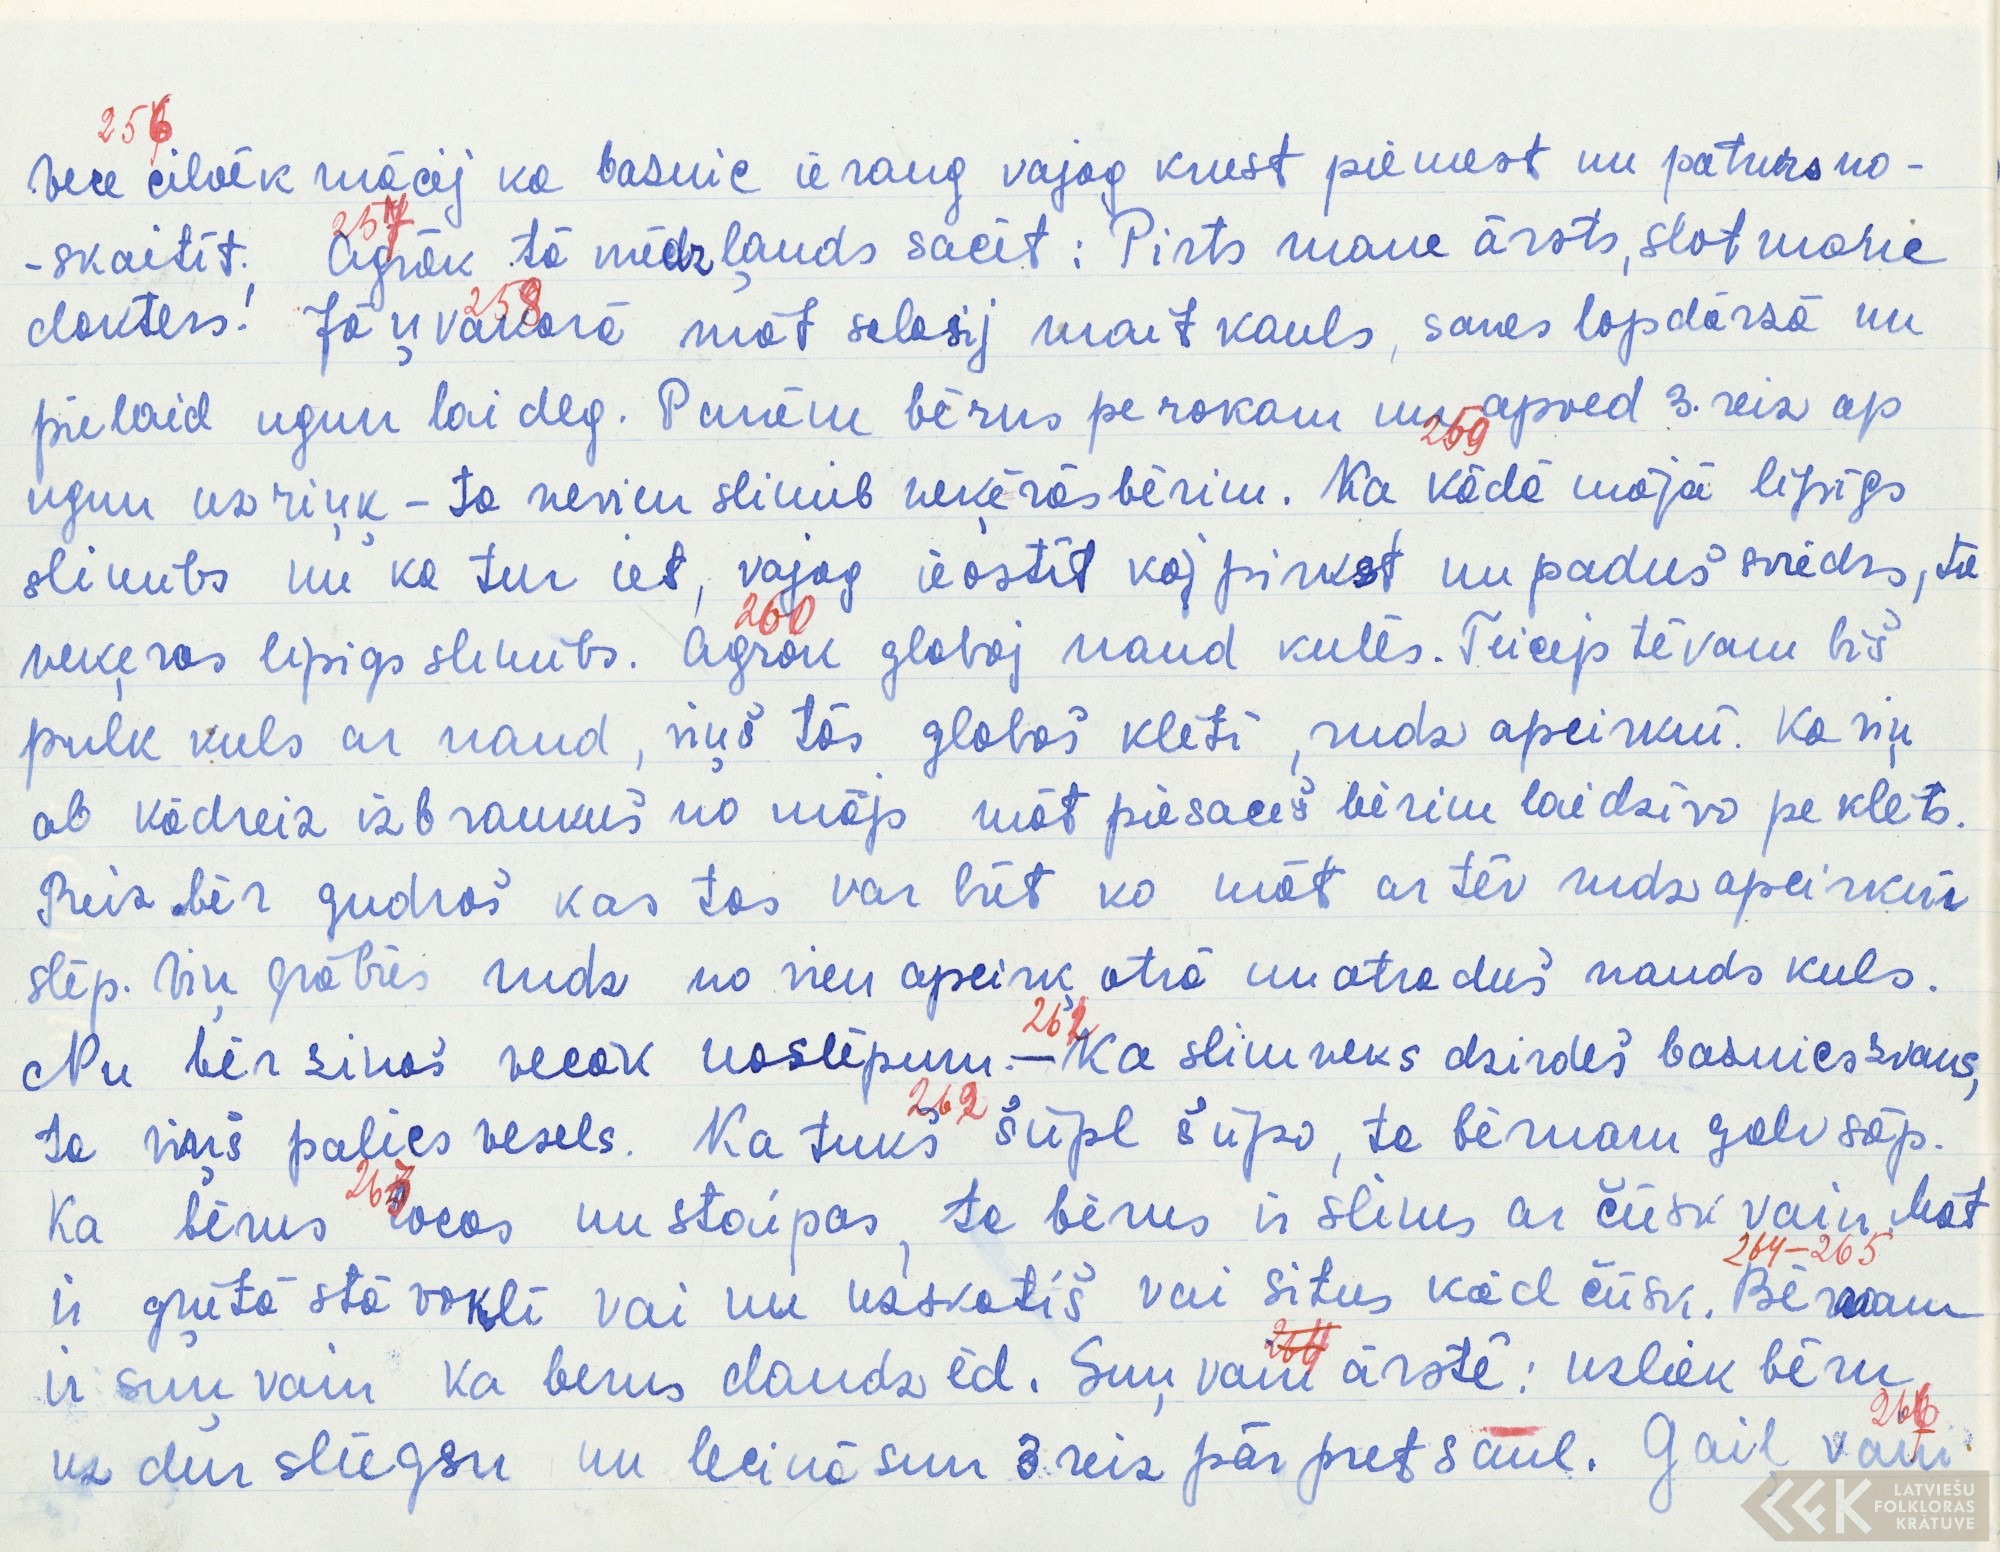 256
Vece cilvēk mācij ka basnic ieraug vajag krust piemest un patars no-
-skaitīt. 257 Agrāk tā mēdz ļauds sacīt: Pirts mane ārsts, slot manie
dokters! 258 Jāņvakarā māt salasij mait kauls, sanes lopdārzā un
pielaid ugun lai deg. Panēm bērns pe rokam un apved 3. reiz ap
ugun uz riņķ - ta nevien slimib neķerās bērim. 259 Ka kādā mājā lipigs
slimibs un ka tur iet, vajag ieostīt kāj pirkst un paduš sviedrs, ta
neķeras lipigs slimibs. 260 Agrāk glabaj naud kulēs. Teicēj tēvam biš
pulk kuls ar naud, viņš tās glabaš klētī, rudz apcirknī. Ka viņ
ab kādreiz izbraukuš no māj māt piesaceš bērim lai dzīvo pe klēts.
Reiz bēr gudraš kas tas var būt ka māt ar tēv rudz apcirknī
slēp. Viņ grābūs rudz no vien apcirk otrā un atraduš nauds kuls.
Nu bēr zinaš vecāk noslēpum. - 261 Ka slimneks dzirdeš basnics zvans,
ta viņš palics vesels. 262 Ka tukš šūpl šūpo, ta bērnam galv sāp.
Ka bērns 263 locas un staipas, ta bērns ir slims ar čūsk vain. Māt
ir grūtā stāvoklī vai nu uzskatīš vai situs kād čūsk. 264-265 Bērnam
ir suņ vain ka berns daudz ēd. Suņ vain ārstē: uzliek bērn
uz dur sliegsn un lecinā sun 3 reiz pār pret saul. 266 Gaiļ vain
LATVIEŠU
FOLKLORAS
KRĀTUVE